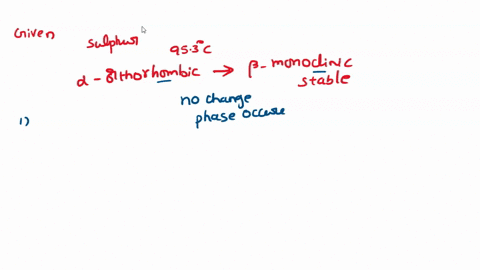 Given
sulphur
95.3°C
α - orthorhombic → β - monoclinic
stable
no change
phase occurs
1)